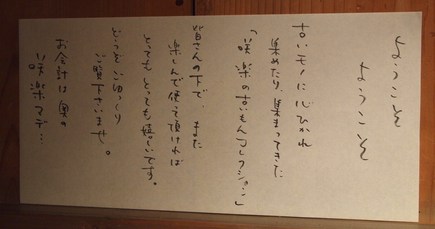 ようこそ
ようこそ
古いモノに心ひかれ
集めたり、集まってきた
「咲楽の古いもんコレクション」
皆さんの下で、また
楽しんで使って頂ければ
とってもとっても嬉しいです。
どうぞごゆっくり
ご覧下さいませ。
お会計は奥の
咲楽マデ…